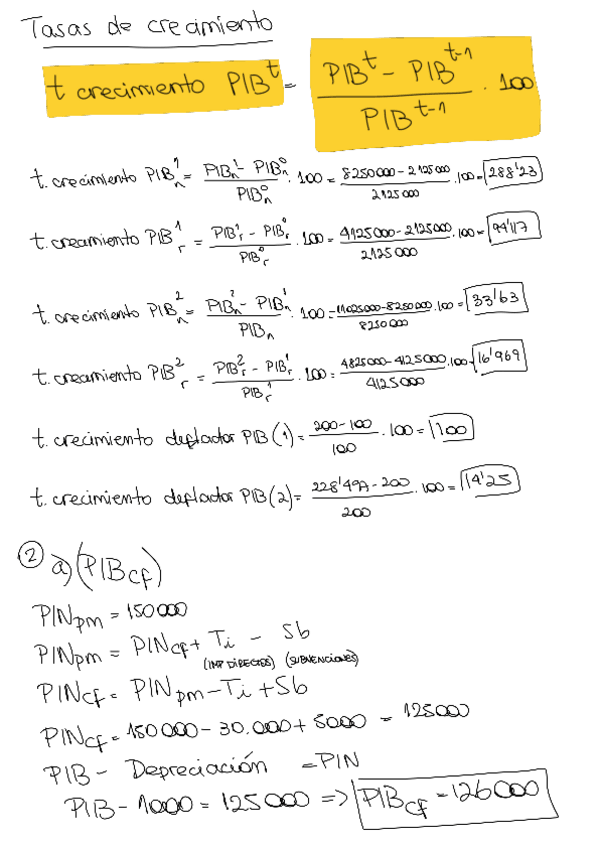 Tasas de crecimiento
t crecimiento PIB^t = (PIB^t - PIB^(t-1)) / PIB^(t-1) · 100
t. crecimiento PIB_n^1 = (PIB_n^1 - PIB_n^0) / PIB_n^0 · 100 = (8250000 - 2125000) / 2125000 · 100 = 288'23
t. crecimiento PIB_r^1 = (PIB_r^1 - PIB_r^0) / PIB_r^0 · 100 = (4125000 - 2125000) / 2125000 · 100 = 94'117
t. crecimiento PIB_n^2 = (PIB_n^2 - PIB_n^1) / PIB_n · 100 = (11025000 - 8250000) / 8250000 · 100 = 33'63
t. crecimiento PIB_r^2 = (PIB_r^2 - PIB_r^1) / PIB_r^1 · 100 = (4825000 - 4125000) / 4125000 · 100 = 16'969
t. crecimiento deflactor PIB (1) = (200 - 100) / 100 · 100 = 100
t. crecimiento deflactor PIB (2) = (228'497 - 200) / 200 · 100 = 14'25
② a) (PIBcf)
PINpm = 150000
PINpm = PINcf + Ti - Sb
(IMP DIRECTOS) (SUBVENCIONES)
PINcf = PINpm - Ti + Sb
PINcf = 150000 - 30.000 + 5000 = 125000
PIB - Depreciación = PIN
PIB - 1000 = 125000 => PIBcf = 126000